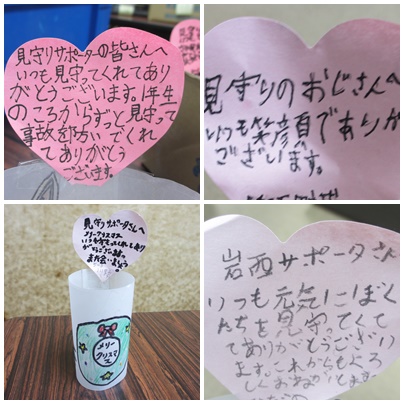 見守りサポーターの皆さんへ
いつも見守ってくれてあり
がとうございます。1年生
のころからずっと見守って
事故を防いでくれ
てありがとう
ございます。
見守りのおじさんへ
いつも笑顔でありが
ございます。
見守りサポーターさんへ
メリークリスマス
いつも守ってくれてあり
メリー
クリスマ
ス
岩西サポータさん
いつも元気にぼく
たちを見守ってくて
てありがとうござい
ます。これからもよろ
しくおねがいします。